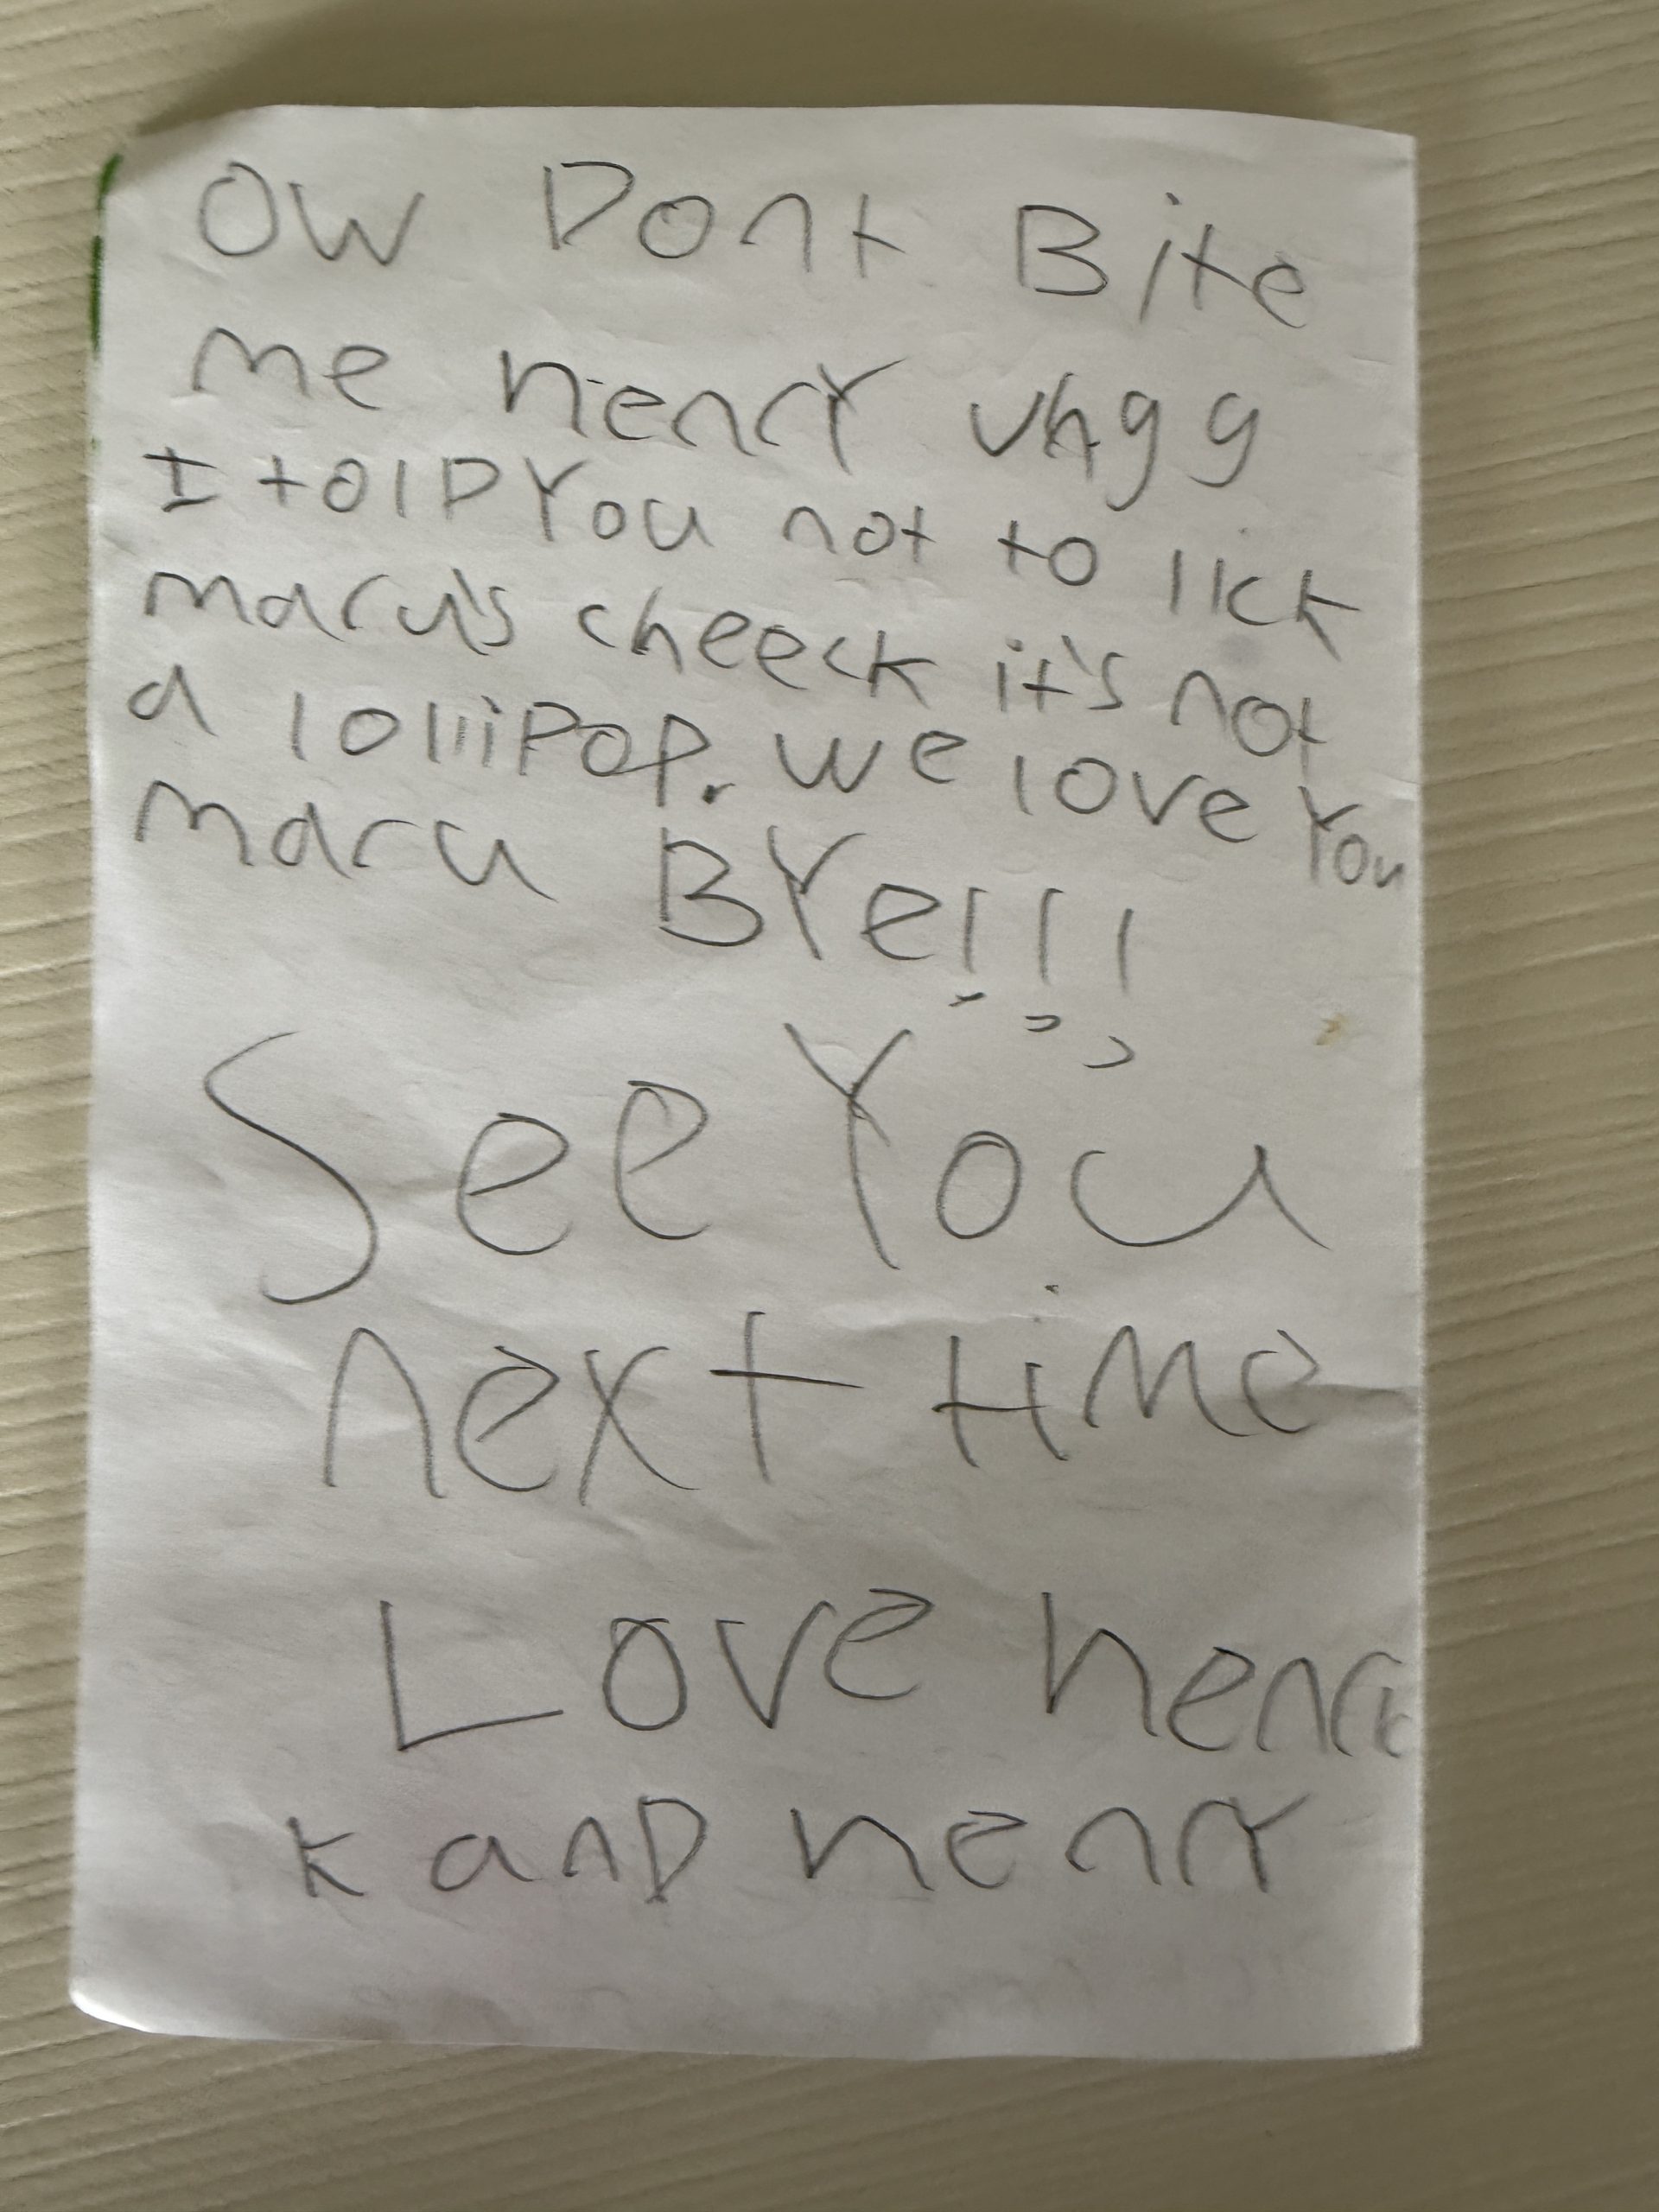 OW Dont Bite
me henry uhgg
I tolD You not to lick
maru's cheeck it's not
a lolliPoP. we love You
maru BYe!!!
See You
next time
Love henri
k anD henry